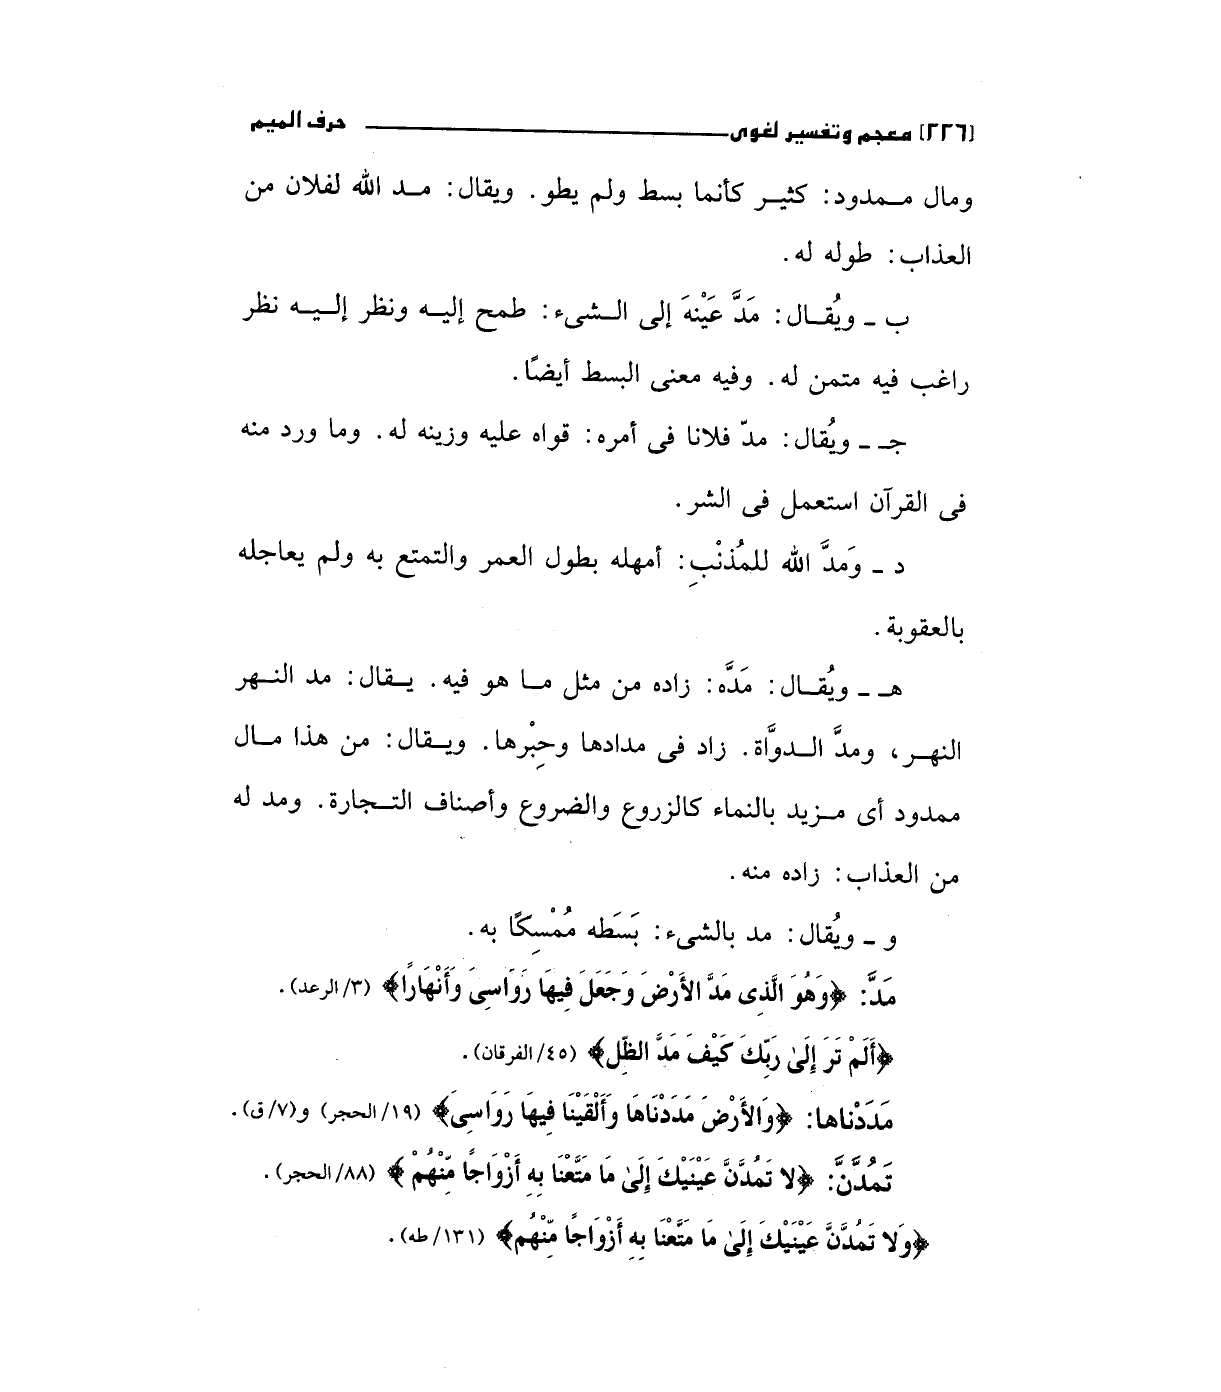 [٢٢٦] معجم وتفسير لغوى ـــــــــــ حرف الميم
ومال ممدود: كثير كأنما بسط ولم يطو. ويقال: مد الله لفلان من
العذاب: طوله له.
ب ـ ويُقال: مَدَّ عَيْنَهَ إلى الشىء: طمح إليه ونظر إليه نظر
راغب فيه متمن له. وفيه معنى البسط أيضًا.
جـ ـ ويُقال: مدّ فلانا فى أمره: قواه عليه وزينه له. وما ورد منه
فى القرآن استعمل فى الشر.
د ـ وَمدَّ الله للمُذنْبِ: أمهله بطول العمر والتمتع به ولم يعاجله
بالعقوبة.
هـ ـ ويُقال: مَدَّه: زاده من مثل ما هو فيه. يقال: مد النهر
النهر، ومدَّ الدوَّاة. زاد فى مدادها وحِبْرها. ويقال: من هذا مال
ممدود أى مزيد بالنماء كالزروع والضروع وأصناف التجارة. ومد له
من العذاب: زاده منه.
و ـ ويُقال: مد بالشىء: بَسَطه مُمْسِكًا به.
مَدَّ: ﴿وَهُوَ الَّذِى مَدَّ الأَرْضَ وَجَعَلَ فِيهَا رَوَاسِىَ وَأَنْهَارًا﴾ (٣/الرعد).
﴿أَلَمْ تَرَ إِلَىٰ رَبِّكَ كَيْفَ مَدَّ الظِّل﴾ (٤٥/الفرقان).
مَدَدْناها: ﴿وَالأَرْضَ مَدَدْنَاهَا وَأَلْقَيْنَا فِيهَا رَوَاسِىَ﴾ (١٩/الحجر) و(٧/ق).
تَمُدَّنَّ: ﴿لا تَمُدَّنَّ عَيْنَيْكَ إِلَىٰ مَا مَتَّعْنَا بِهِ أَزْوَاجًا مِّنْهُمْ﴾ (٨٨/الحجر).
﴿وَلا تَمُدَّنَّ عَيْنَيْكَ إِلَىٰ مَا مَتَّعْنَا بِهِ أَزْوَاجًا مِّنْهُم﴾ (١٣١/طه).